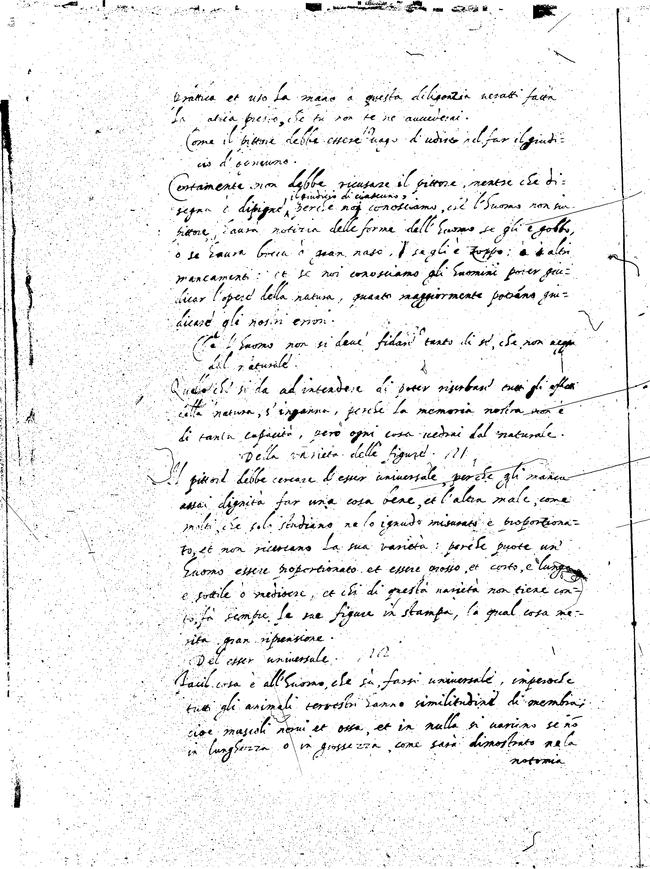 pratica et uso la mano à questa diligenzia veratti fatta
la pratica presto, che tu non te ne avvederai.
Come il pittore debbe essere vago d'udire nel far il giudi-
cio d'ogn'uno.
Certamente non debbe ricusare il pittore, mentre che di-
il giudicio di ciascuno,
segna ò dipigne, Perche noi conosciamo, che l'huomo non sia
pittore, haura notizia delle forme dell'huomo se gli è gobbo,
ò se haura bocca ò gran naso, se gli è zoppo: ò altri
mancamenti: et se noi conosciamo gli huomini poter giu-
dicar l'opere della natura, quanto maggiormente potrano giu-
dicare gli nostri errori.
Che l'huomo non si deve fidare tanto di se, che non
dal naturale.
Quello che si da ad intendere di poter riserbare tutti gli effetti
della natura, s'inganna, perche la memoria nostra non è
di tanta capacità, però ogni cosa vedrai dal naturale.
Della varietà delle figure. 121
Il pittore debbe cercare di esser universale, perche gli manca
assai dignità far una cosa bene, et l'altra male, come
molti, che solo studiano ne lo ignudo misurato è proportiona-
to, et non ricercano la sua varietà: perche puote un'
huomo essere proportionato et essere grosso, et corto, è lungo
e sottile o mediocre, et chi di questa varietà non tiene con-
to, fa sempre le sue figure in stampa, la qual cosa me-
rita gran riprensione.
Del esser universale. 122
Facil cosa è all'huomo, che sa, farsi universale, imperoche
tutti gli animali terrestri hanno similitudine di membra,
cioe muscoli nervi et ossa, et in nulla si variono se nō
in lunghezza o in grossezza, come sarà dimostrato nela
notomia